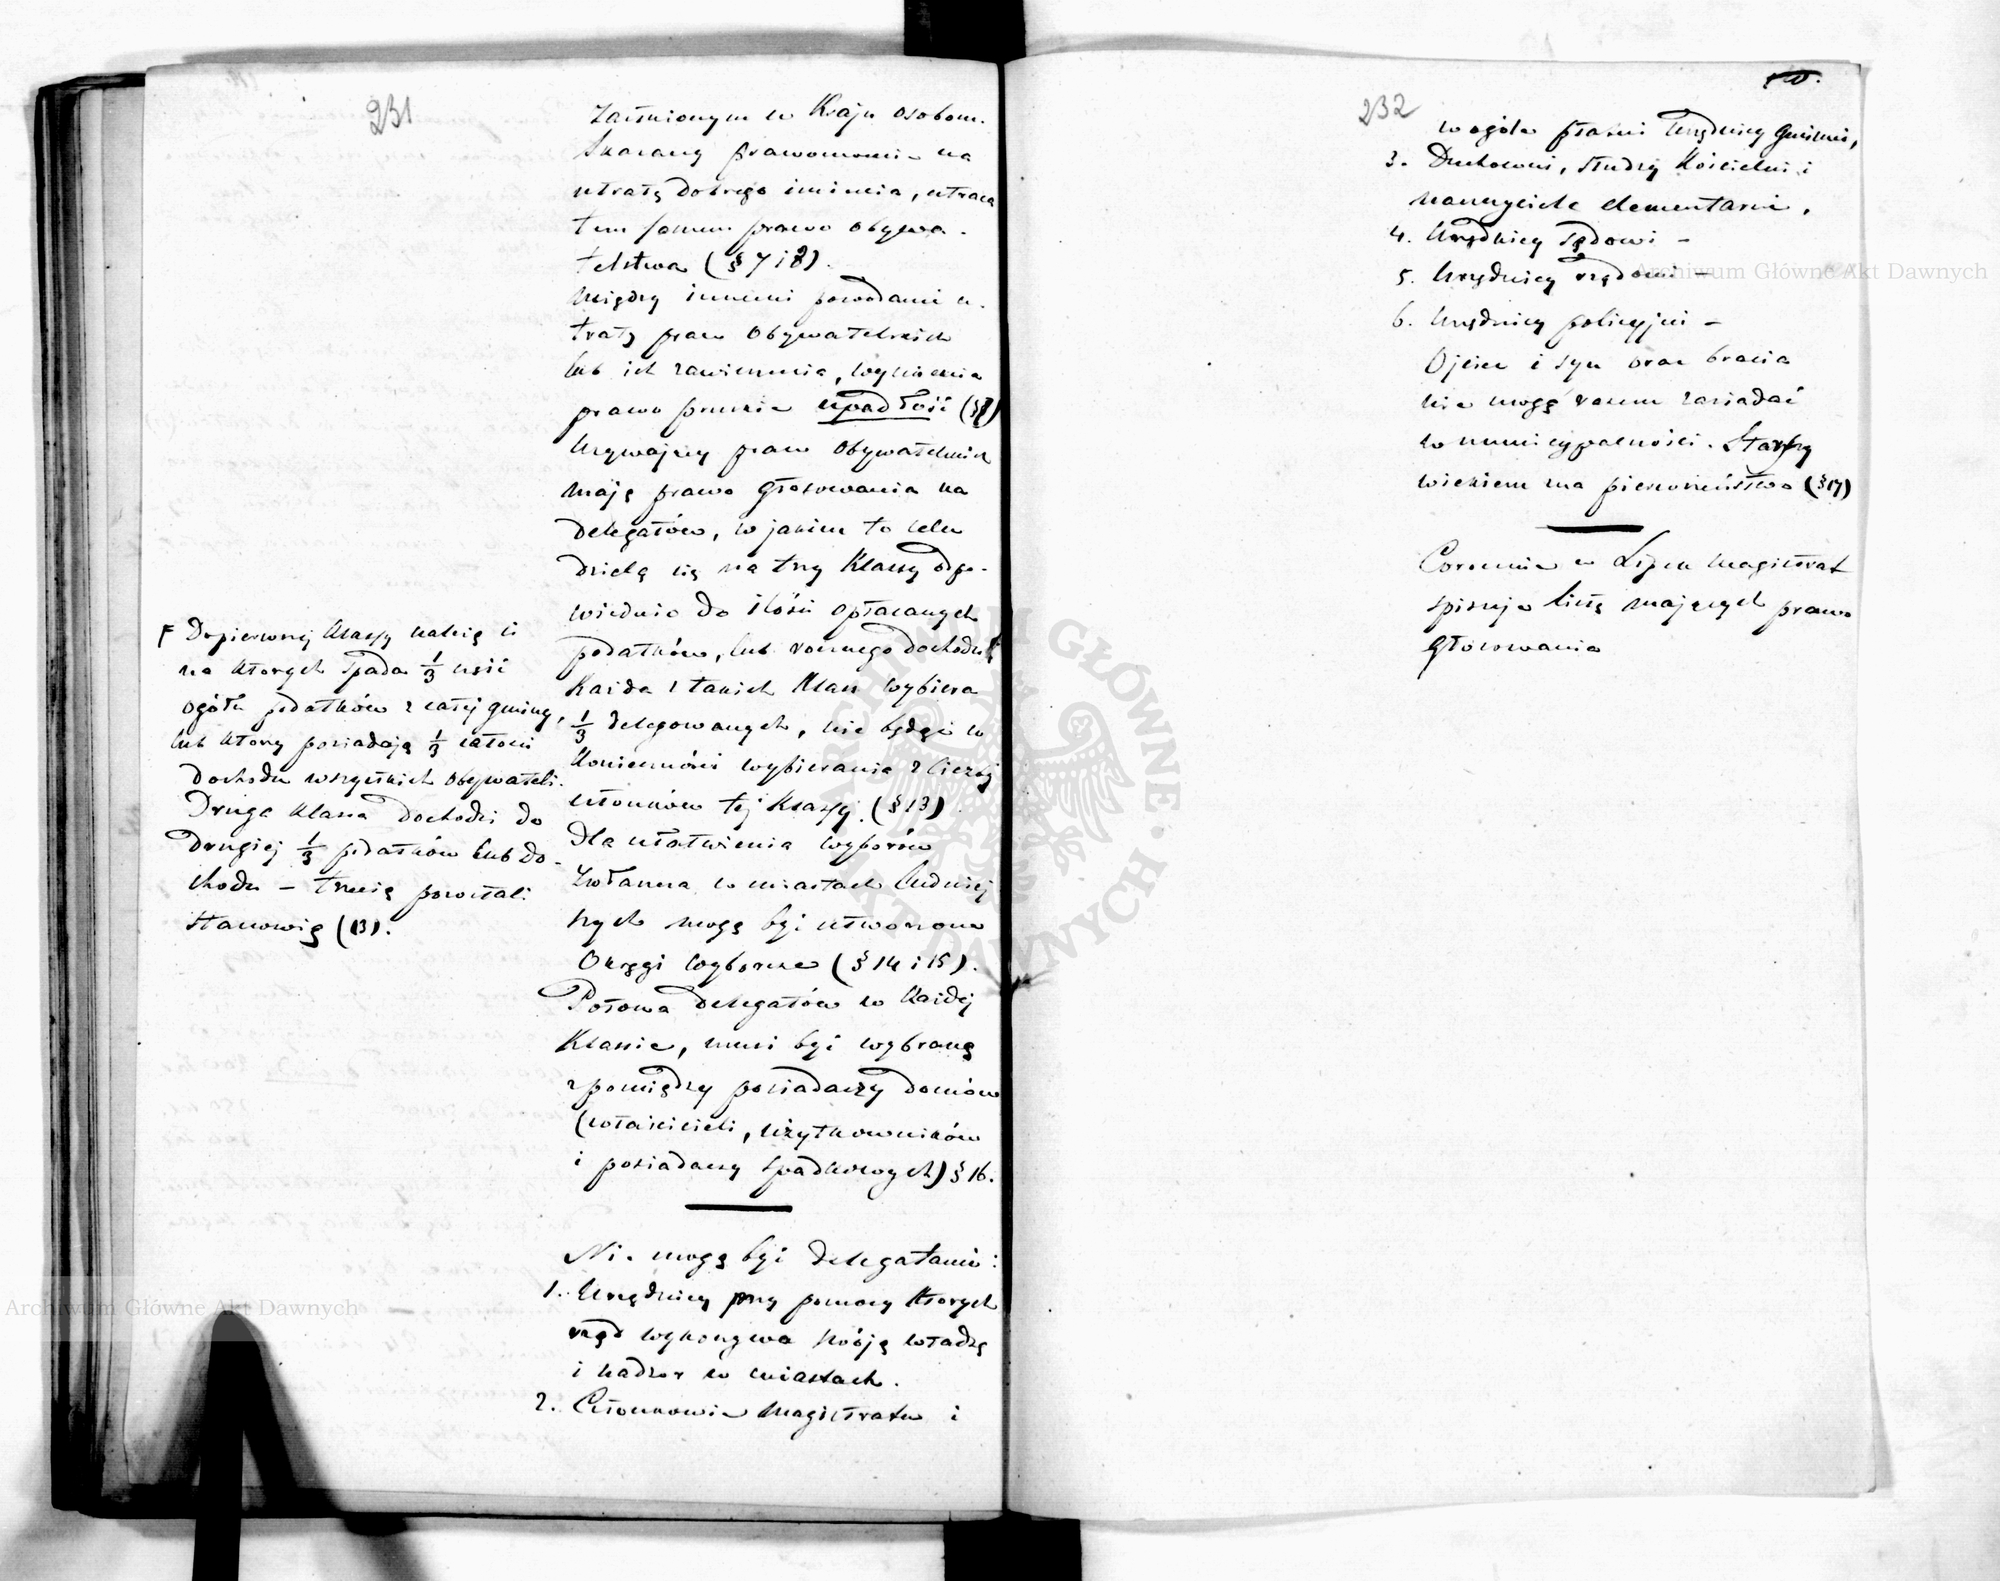 231
Zasłużonym w Kraju osobom.
Skazany prawomocnie na
utratę dobrego imienia, utraca
tem samem prawo obywa-
telstwa (§ 7 i 8).
Między innemi powodami u-
traty praw obywatelskich
lub ich zawieszenia, wymienia
prawo pruskie upadłość (§ 7)
Używający praw obywatelskich
mają prawo głosowania na
delegatów, w jakim to celu
dzielą się na trzy Klassy odpo-
wiednio do ilości opłacanych
podatków, lub rocznego dochodu F
Każda z takich Klass wybiera
1/3 delegowanych, nie będąc w
konieczności wybierania z liczby
członków tej Klassy. (§ 13).
Dla ułatwienia wyborów
zwłaszcza w miastach ludniej
szych mogą być utworzone
Okręgi wyborcze (§ 14 i 15).
Połowa delegatów w każdej
Klassie, musi być wybraną
z pomiędzy posiadaczy domów
(właścicieli, użytkowników
i posiadaczy spadkowych) § 16.
Nie mogą być delegatami:
1. Urzędnicy przy pomocy których
rząd wykonywa swóją władzę
i nadzór w miastach.
2. Członkowie Magistratu i
F Do pierwszej klassy należą ci
na których spada 1/3 część
ogółu podatków z całej gminy,
lub którzy posiadają 1/3 całości
dochodu wszystkich obywateli.
Druga klassa dochodzi do
drugiej 1/3 podatków lub do-
chodu – trzecią pozostali
stanowią (13).
232
w ogóle płatni Urzędnicy gminni,
3. Duchowni, słudzy Kościelni i
nauczyciele elementarni,
4. Urzędnicy sądowi –
5. Urzędnicy rządowi –
6. Urzędnicy policyjni –
Ojciec i syn oraz bracia
nie mogą razem zasiadać
w municypalności. Starszy
wiekiem ma pierwszeństwo (§ 17)
Corocznie w Lipcu Magistrat
spisuje listę mających prawo
głosowania
Archiwum Główne Akt Dawnych
Archiwum Główne Akt Dawnych
ARCHIWUM GŁÓWNE AKT DAWNYCH